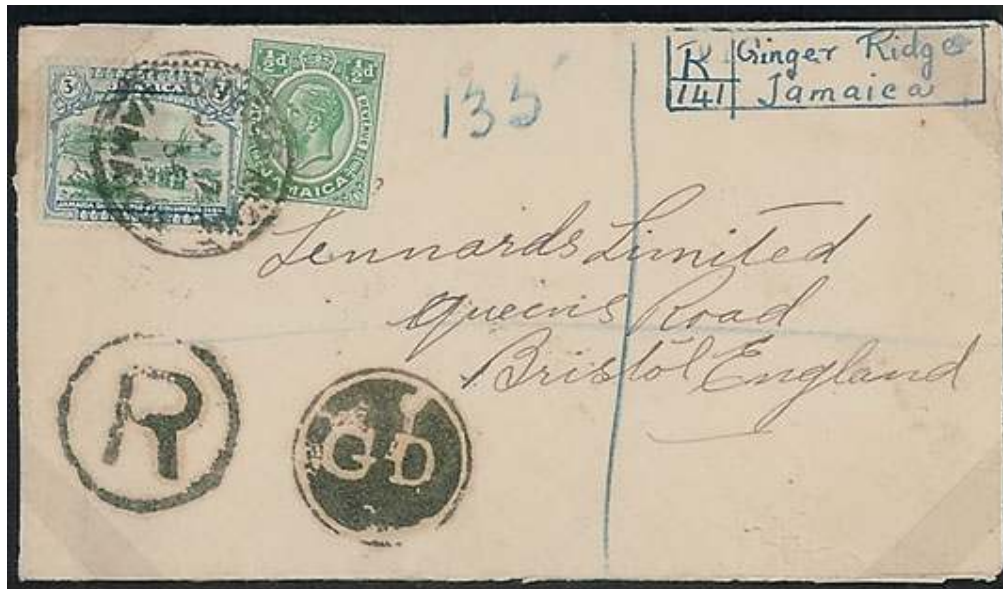 R Ginger Ridge
141 Jamaica
133
½d ½d
JAMAICA
3
Lennards Limited
Queens Road
Bristol England
R
GD